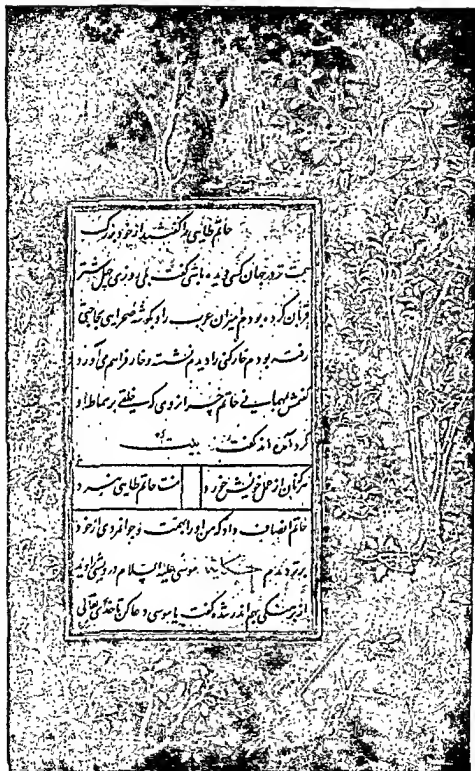 حاتم طایی را گفتند از خود بزرگ
همت تر در جهان کسی دیده باشی گفت بلی روزی چهل شتر
قربان کرده بودم امیران عرب را و بگوشه صحرایی بحاجتی
رفته بودم خارکنی را دیدم پشته خار فراهم آورده
گفتمش بمهمانی حاتم چرا نروی که خلقی بر سماط او
گرد آمده اند گفت بیت
هرکه نان از عمل خویش خورد منت حاتم طایی نبرد
حاتم انصاف داد که من او را بهمت و جوانمردی از خود
برتر دیدم حکایت موسی علیه السلام درویشی را دید
از برهنگی بریگ اندر شده گفت یا موسی دعا کن تا خدای تعالی